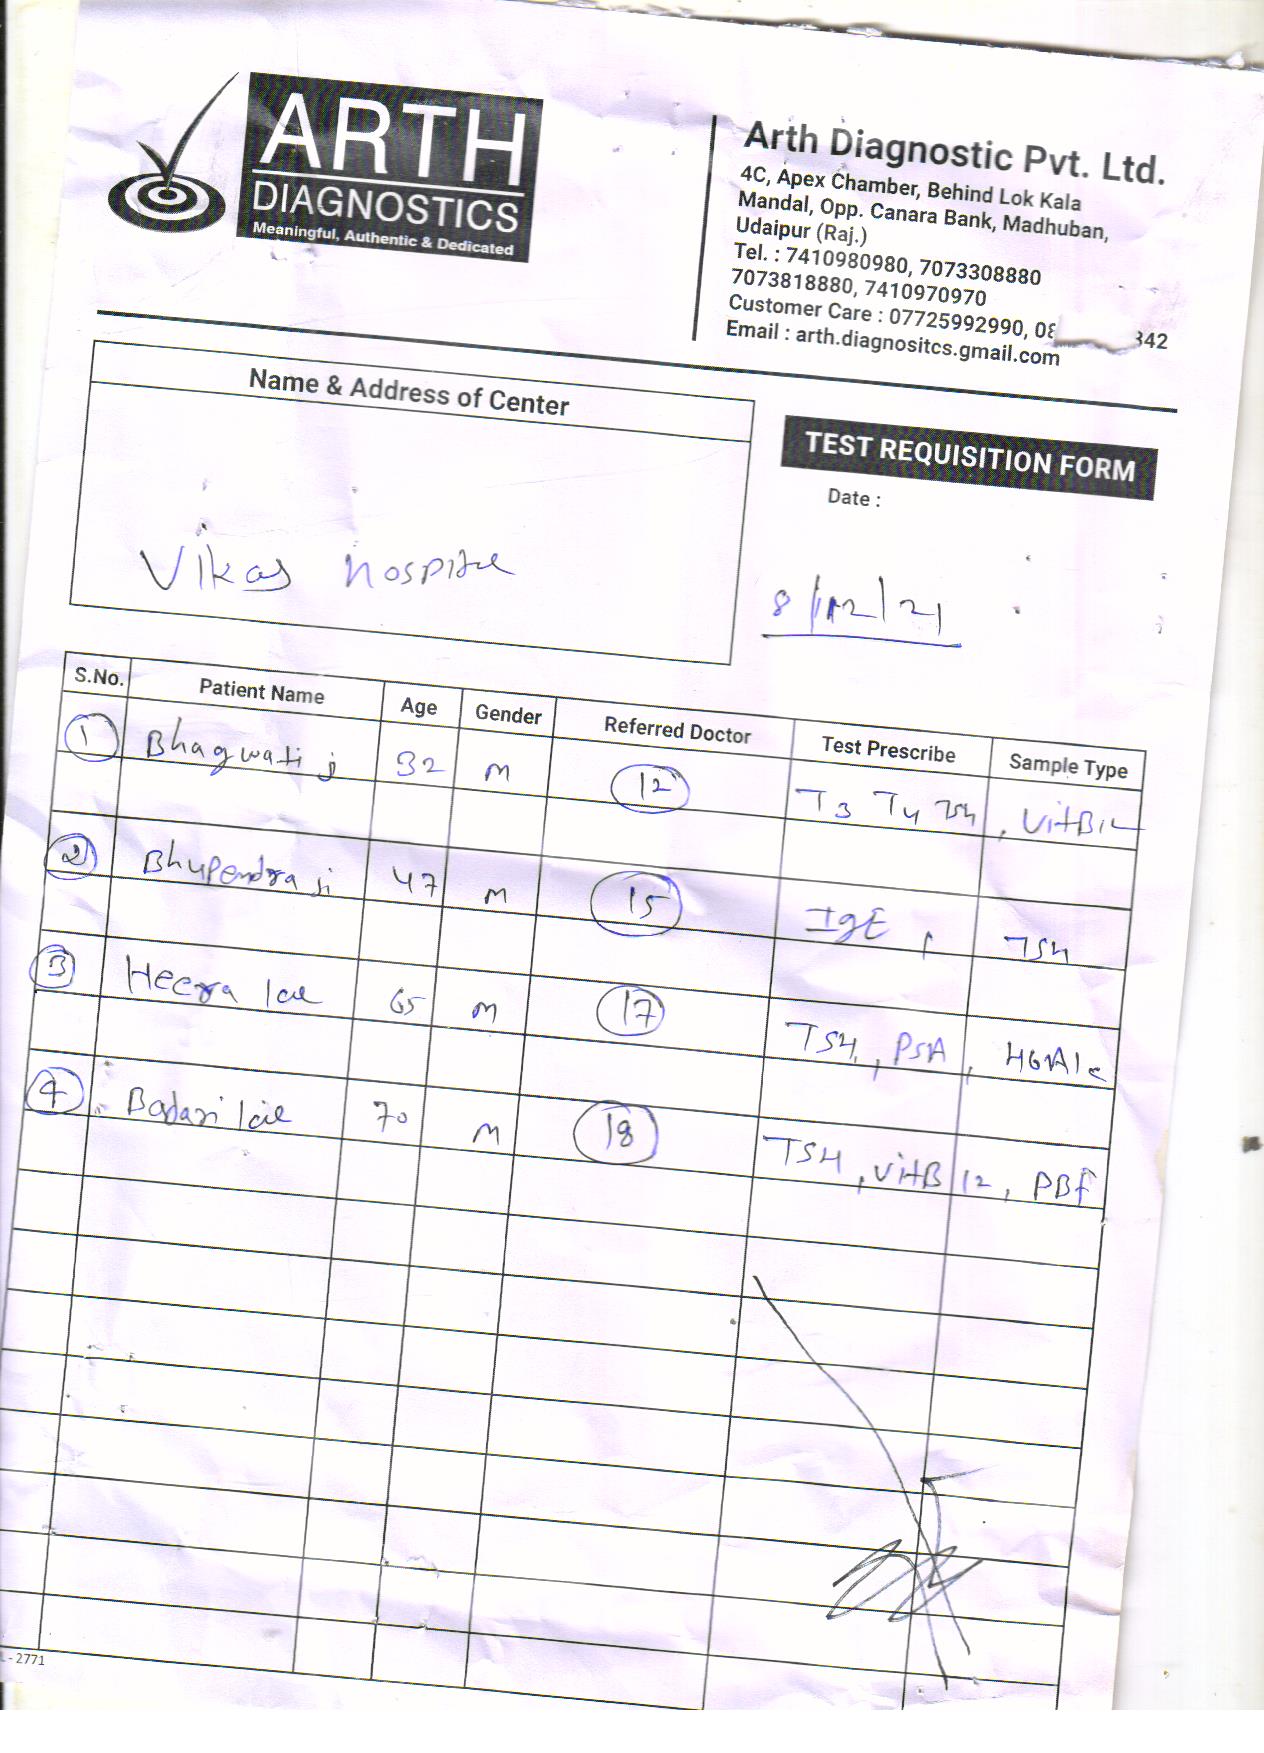 ARTH
DIAGNOSTICS
Meaningful, Authentic & Dedicated
Arth Diagnostic Pvt. Ltd.
4C, Apex Chamber, Behind Lok Kala
Mandal, Opp. Canara Bank, Madhuban,
Udaipur (Raj.)
Tel. : 7410980980, 7073308880
7073818880, 7410970970
Customer Care : 07725992990, 08 342
Email : arth.diagnositcs.gmail.com
Name & Address of Center
Vikas Hospital
TEST REQUISITION FORM
Date :
8/12/21
S.No. Patient Name Age Gender Referred Doctor Test Prescribe Sample Type
1 Bhagwati ji 32 M 12 T3 T4 TSH, VitB12
2 Bhupendra ji 47 M 15 IgE, TSH
3 Heera lal 65 M 17 TSH, PSA, HbA1c
4 Badari lal 70 M 18 TSH, VitB12, PBF
- 2771